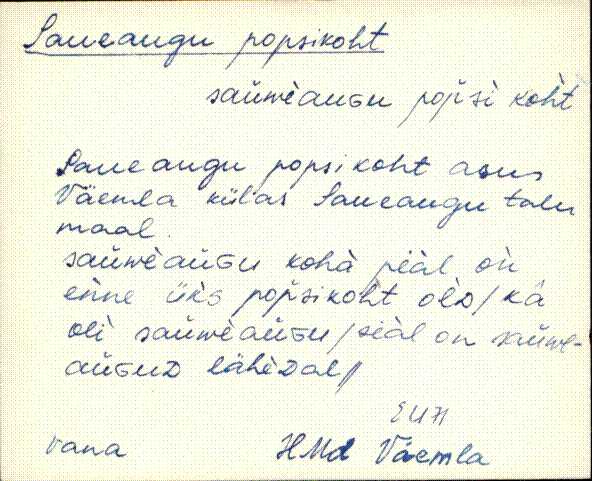 Saueaugu popsikoht
saŭwèauGu pop̆sì kòht
Saueaugu popsikoht asus
Väemla külas Saueaugu talu
maal.
saŭwèaŭGu kohà pèàl òn
ènne ük̀s pop̆sikoht òlD/kà
oli saŭwèaŭGu/seàl on saŭwe-
aŭGuD lähèDal/
EM71
vana HMd Väemla